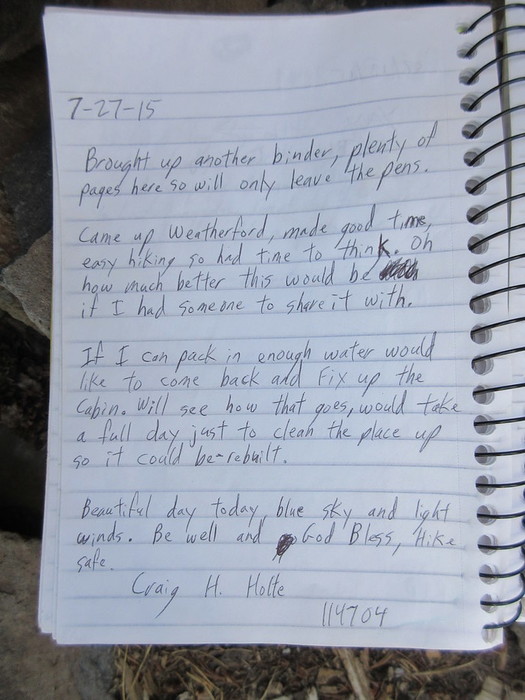 7-27-15
Brought up another binder, plenty of
pages here so will only leave the pens.
Came up Weatherford, made good time,
easy hiking so had time to think. Oh
how much better this would be
if I had someone to share it with.
If I can pack in enough water would
like to come back and fix up the
cabin. Will see how that goes, would take
a full day just to clean the place up
so it could be-rebuilt.
Beautiful day today, blue sky and light
winds. Be well and God Bless, Hike
safe.
Craig H. Holte
114704